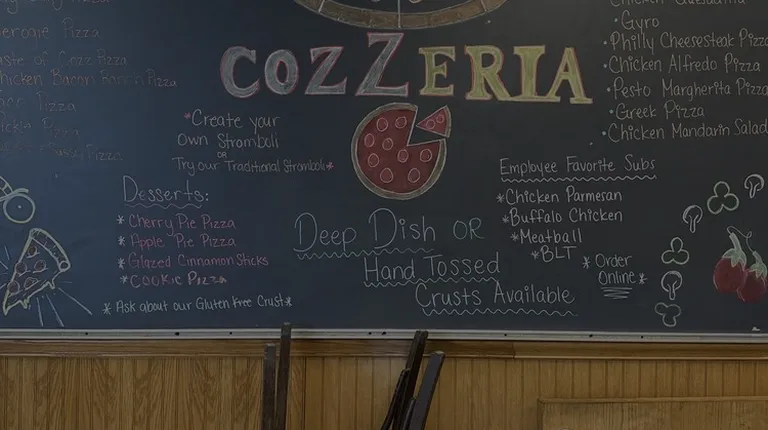 Pizza
Taste of Cozz Pizza
Chicken Bacon Pizza
Pizza
Pizza
COZZERIA
*Create your
Own Stromboli
OR
Try our Traditional Stromboli*
Desserts:
*Cherry Pie Pizza
*Apple Pie Pizza
*Glazed Cinnamon Sticks
*Cookie Pizza
*Ask about our Gluten Free Crust*
Deep Dish OR
Hand Tossed
Crusts Available
Chicken Quesadilla
•Gyro
•Philly Cheesesteak Pizza
•Chicken Alfredo Pizza
•Pesto Margherita Pizza
•Greek Pizza
•Chicken Mandarin Salad
Employee Favorite Subs
*Chicken Parmesan
*Buffalo Chicken
*Meatball
*BLT
*Order
Online*